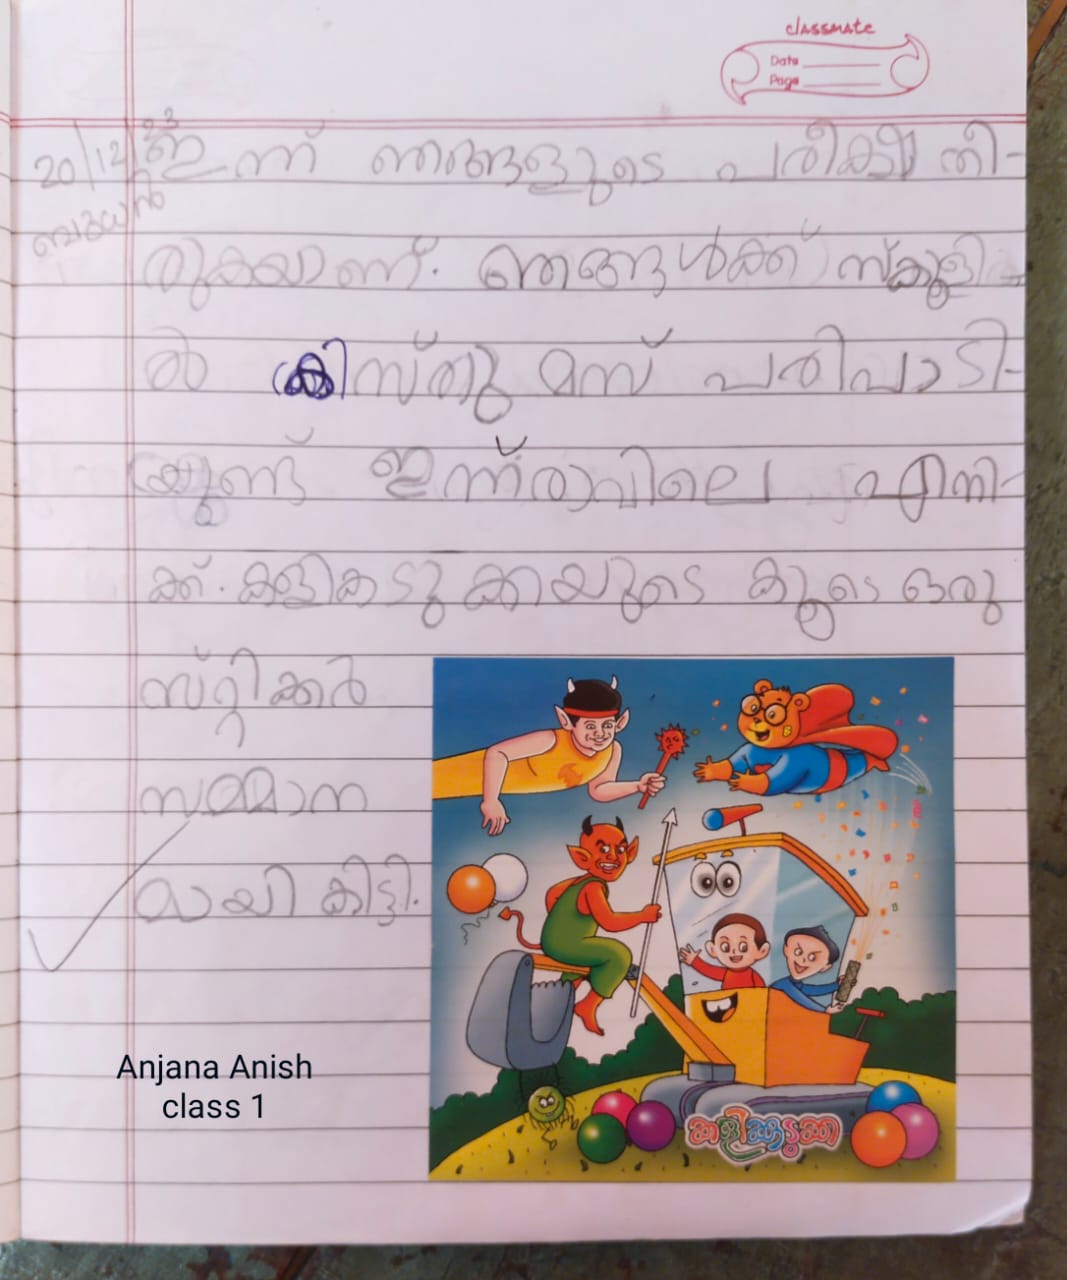 classmate
Date
Page
20/12/23
ബുധൻ
ഇന്ന് ഞങ്ങളുടെ പരീക്ഷ തീ-
രുകയാണ്. ഞങ്ങൾക്ക് സ്കൂളി
ൽ ക്രിസ്തുമസ് പരിപാടി-
യുണ്ട് ഇന്ന് രാവിലെ എനി-
ക്ക്. കളികടുക്കയുടെ കൂടെ ഒരു
സ്റ്റിക്കർ
സമ്മാന
മായി കിട്ടി.
Anjana Anish
class 1
കളിക്കുടുക്ക